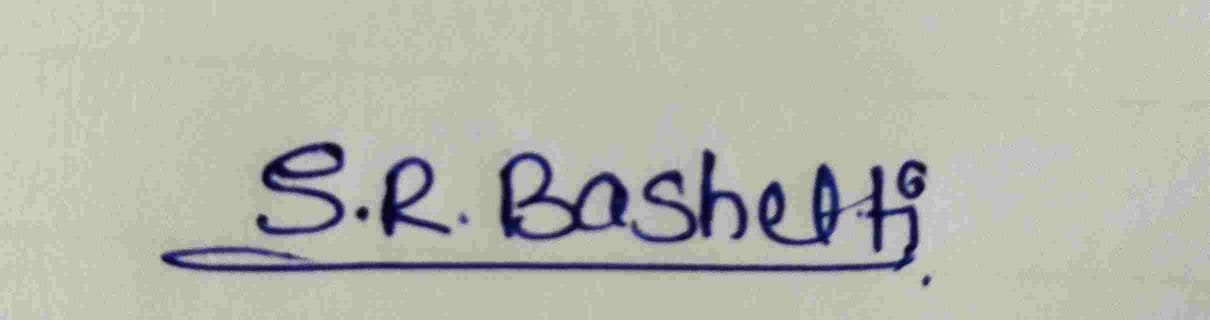 S.R. Bashetti